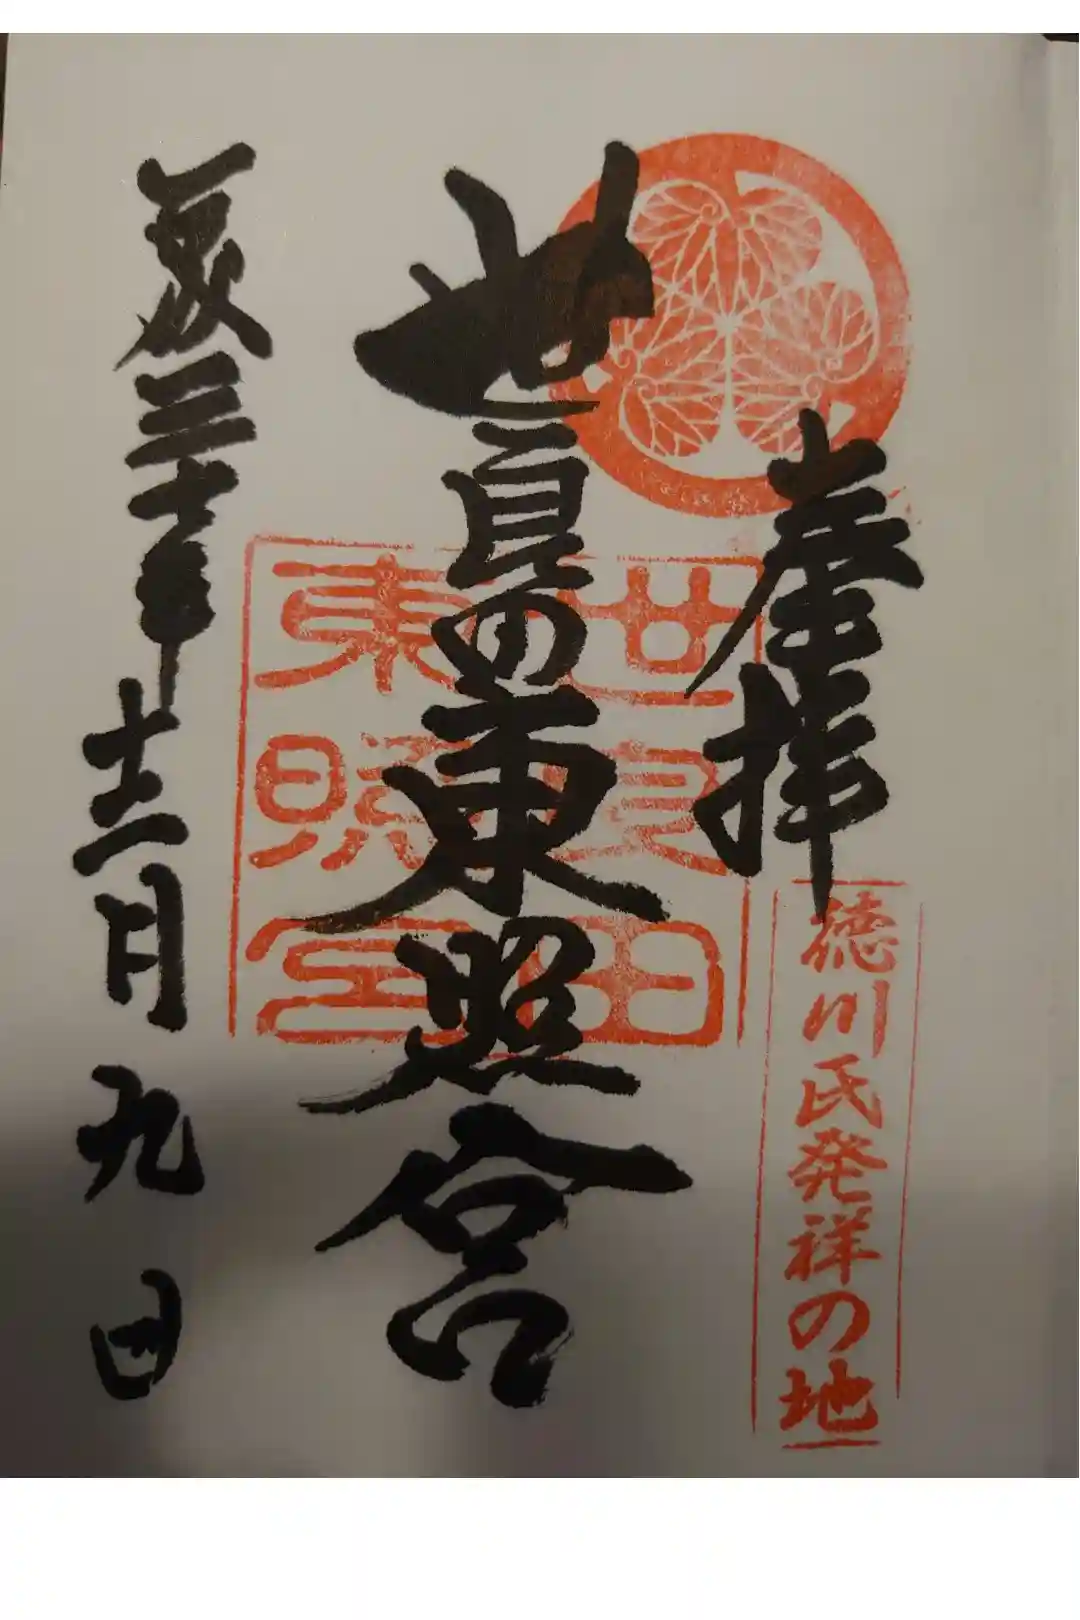 奉拝
徳川氏発祥の地
世良田東照宮
世良田
東照宮
平成三十年十二月九日